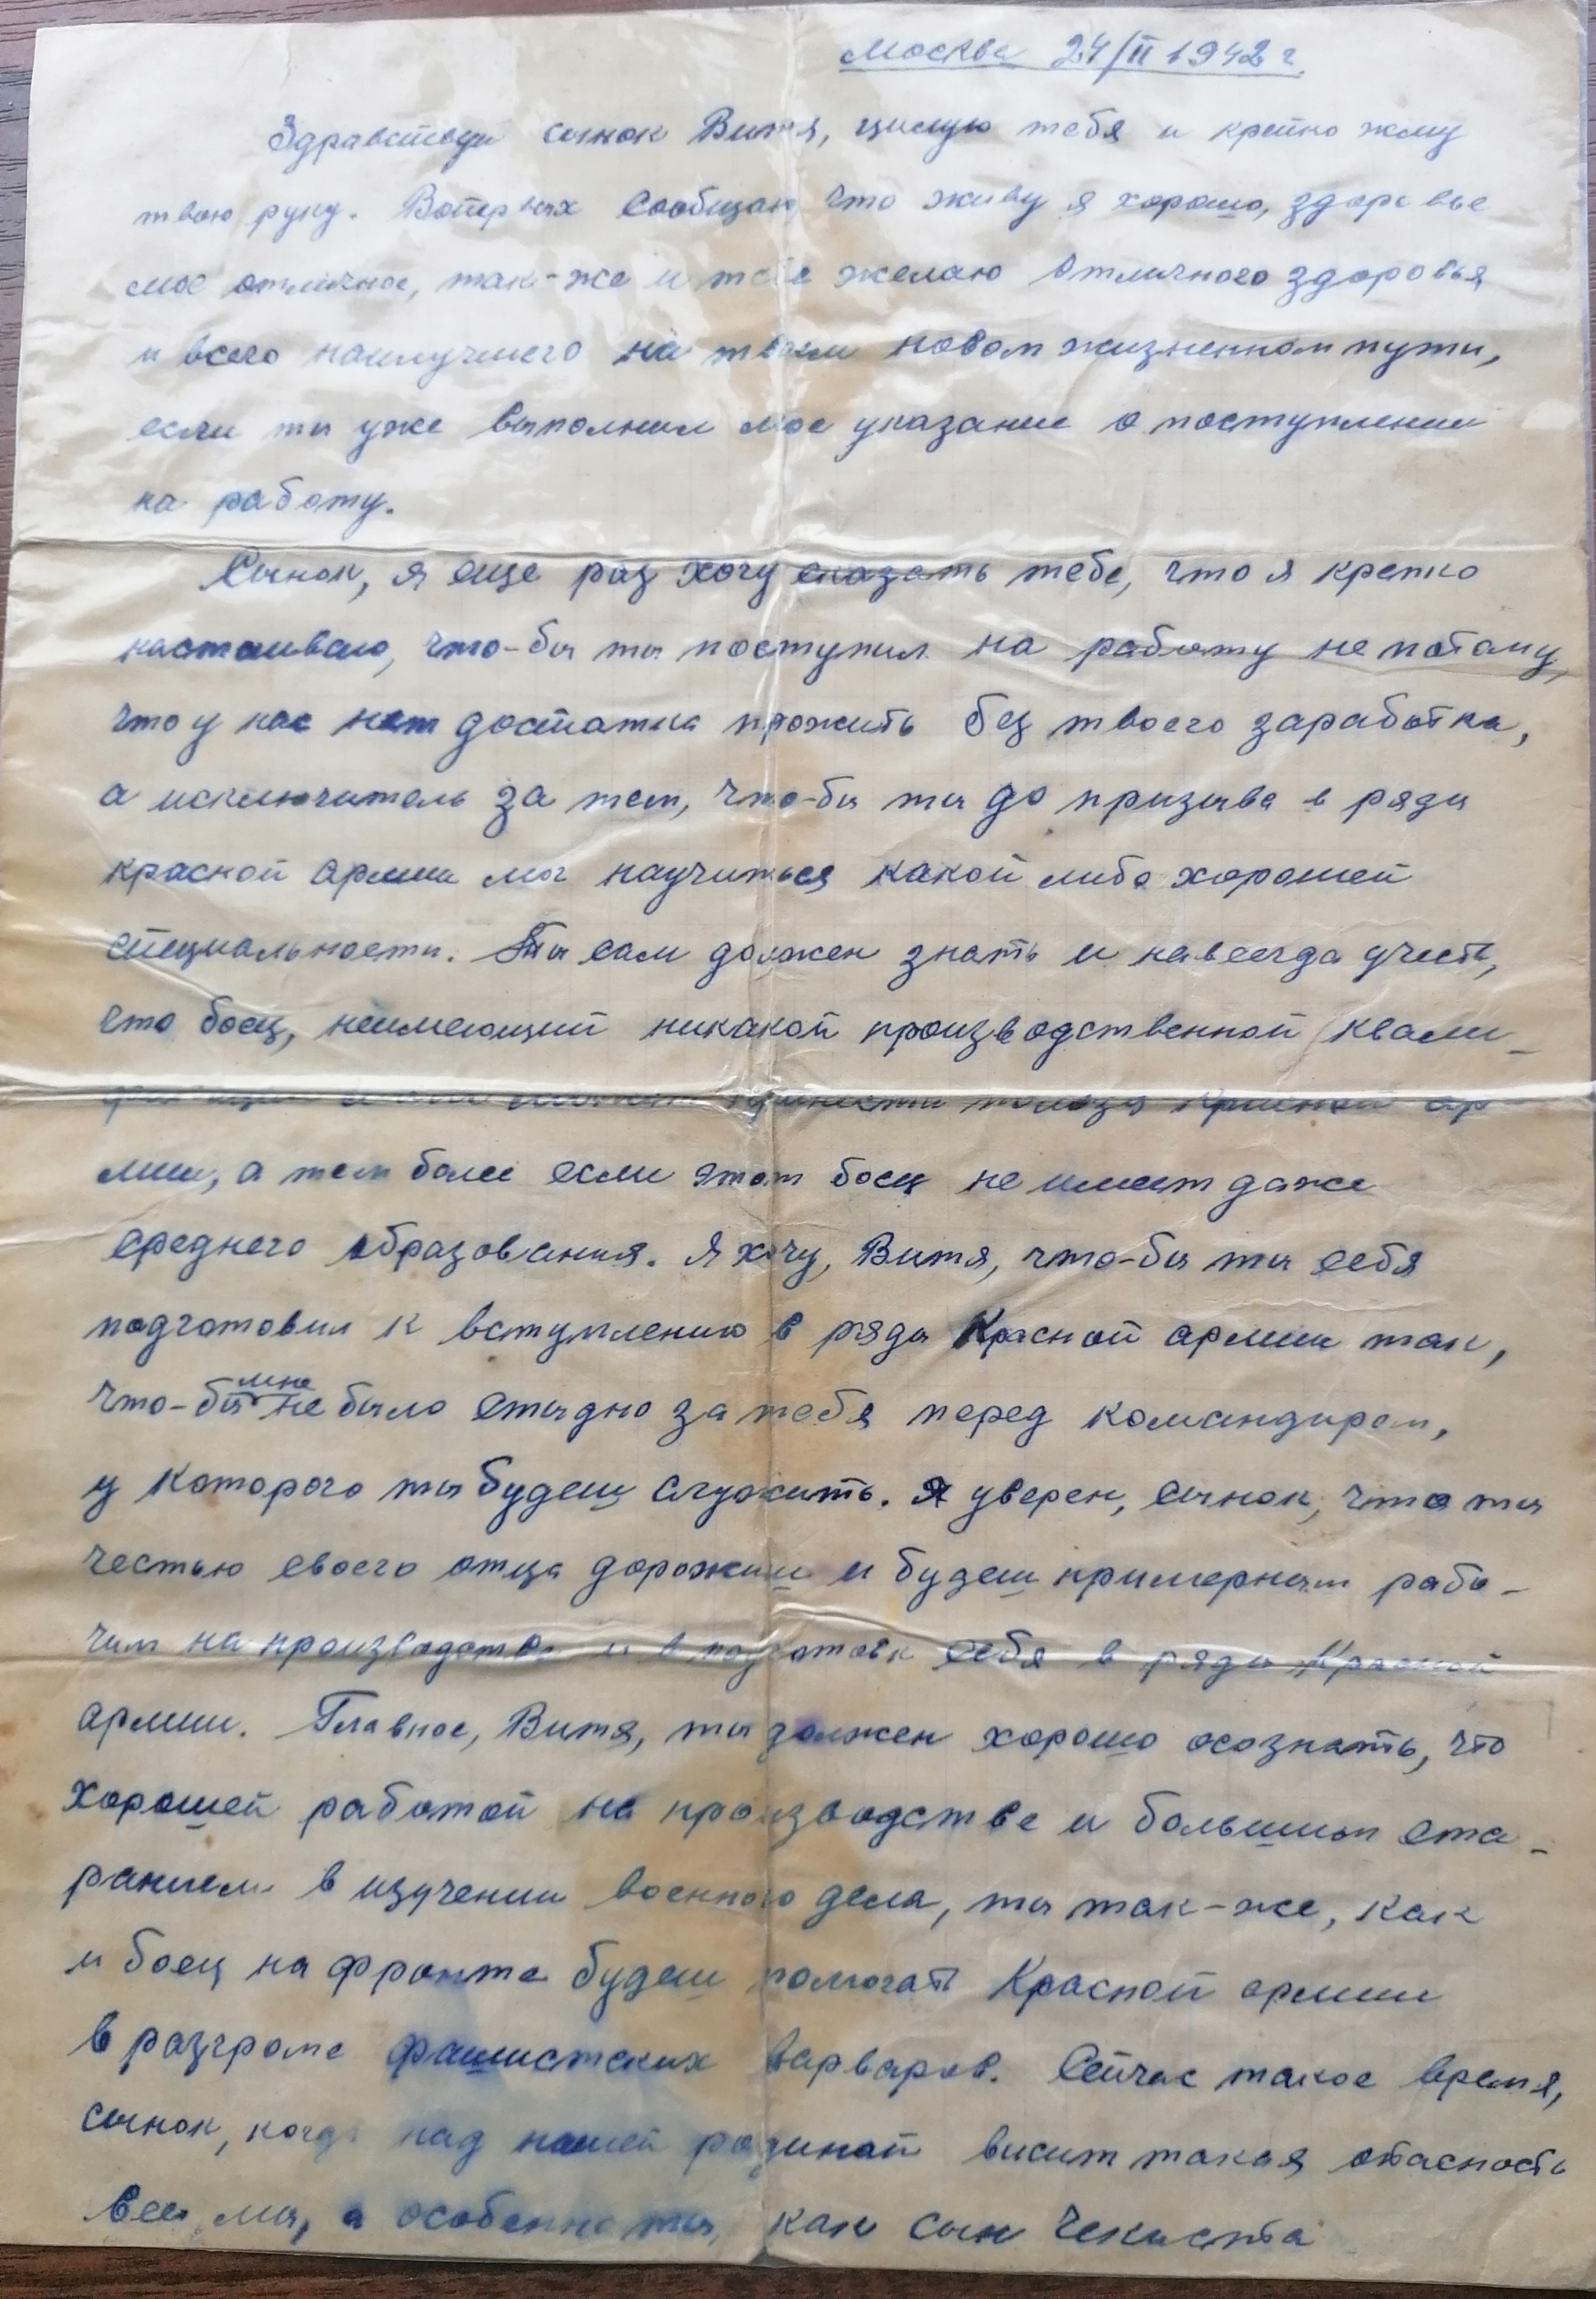 Москва 24/II 1942 г.
Здравствуй сынок Витя, цилую тебя и крепко жму
твою руку. Вопервых сообщаю, что живу я хорошо, здоровье
мое отличное, так-же и тебе желаю отличного здоровья
и всего наилучшего на твоем новом жизненном пути,
если ты уже выполнил мое указание о поступлении
на работу.
Сынок, я еще раз хочу сказать тебе, что я крепко
настаиваю, что-бы ты поступил на работу не потому,
что у нас нет достатка прожить без твоего заработка,
а исключитель за тем, что-бы ты до призыва в ряды
красной армии мог научиться какой либо хорошей
специальности. Ты сам должен знать и навсегда учесть,
что боец, неимеющий никакой производственной квали-
принести пользы Красной ар-
мии, а тем более если этот боец не имеет даже
среднего образования. Я хочу, Витя, что-бы ты себя
подготовил к вступлению в ряды Красной армии так,
что-бы мне не было стыдно за тебя перед командиром,
у которого ты будеш служить. Я уверен, сынок, что ты
честью своего отца дорожиш и будеш примерным рабо-
чим на производстве и в подготовк себя в ряды Красной
армии. Главное, Витя, ты должен хорошо осознать, что
хорошей работой на производстве и большим ста-
ранием в изучении военного дела, ты так-же, как
и боец на фронте будеш помогать Красной армии
в разгроме фашистских варваров. Сейчас такое время,
сынок, когда над нашей родиной висит такая опасность
все мы, а особенно ты, как сын чекиста